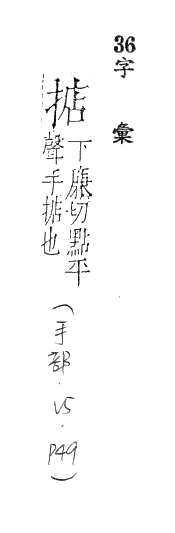 36字 彙
掂
下廉切點平
聲手掂也
(手部.V5.P49)